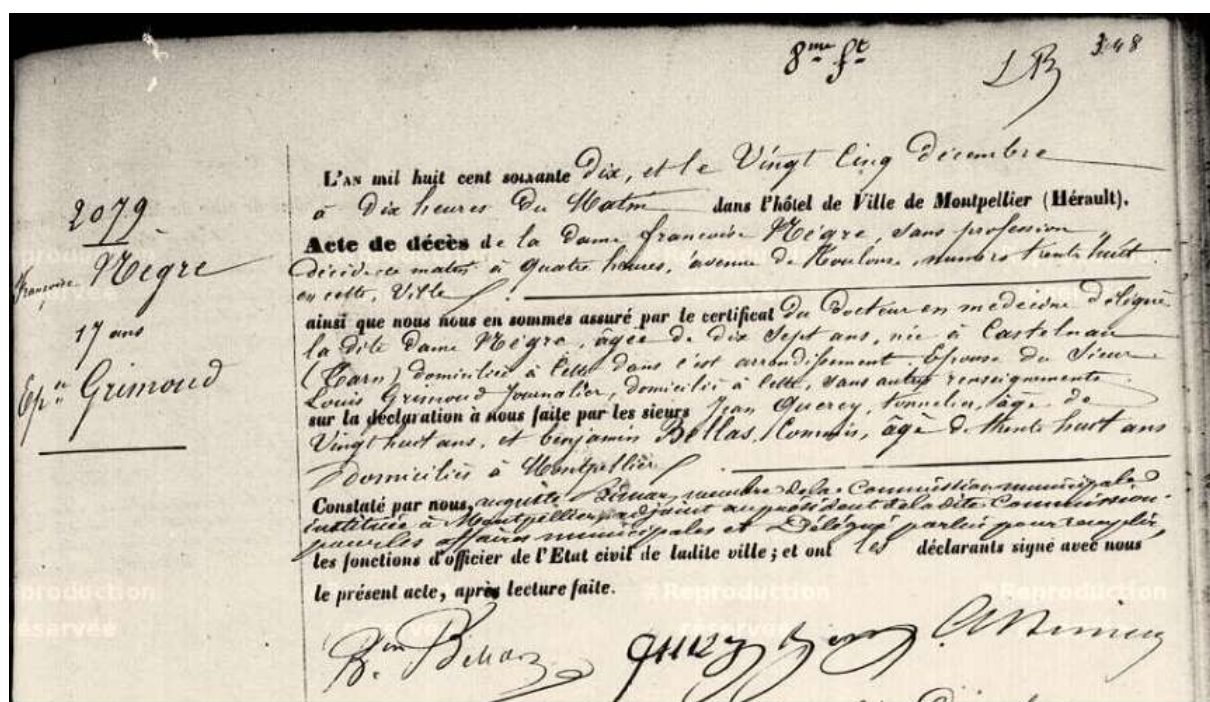 8me ft
348
L'AN mil huit cent soixante Dix, et le Vingt Cinq Décembre
à Dix heures Du Matin dans l'hôtel de Ville de Montpellier (Hérault).
Acte de décès de la Dame françoise Nègre, sans profession
décédée ce matin à quatre heures, avenue de Toulouse, numéro trente huit
en cette Ville
ainsi que nous nous en sommes assuré par le certificat Du Docteur en médecine Délégué
la dite Dame Nègre, âgée de dix sept ans, née à Castelnau
(Tarn) domiciliée à Cette dans c'est arrondissement Epouse du Sieur
Louis Grimoud Journalier, domicilié à Cette, sans autres renseignements
sur la déclaration à nous faite par les sieurs Jean Quercy, tonnelier, âgé de
Vingt huit ans, et benjamin Bellas, Commis, âgé de trente huit ans
domiciliés à Montpellier
Constaté par nous, auguste membre de la Commission municipale
instituée à Montpellier, adjoint au président de la dite Commission
pour les affaires municipales et Délégué par lui pour remplir
les fonctions d'officier de l'Etat civil de ladite ville ; et ont les déclarants signé avec nous
le présent acte, après lecture faite.
2079
françoise Nègre
17 ans
Epse Grimoud
Reproduction
réservée